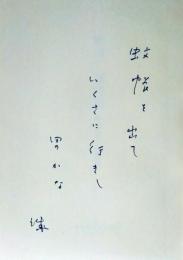 蚊帳を出て
いくさに行きし
男かな